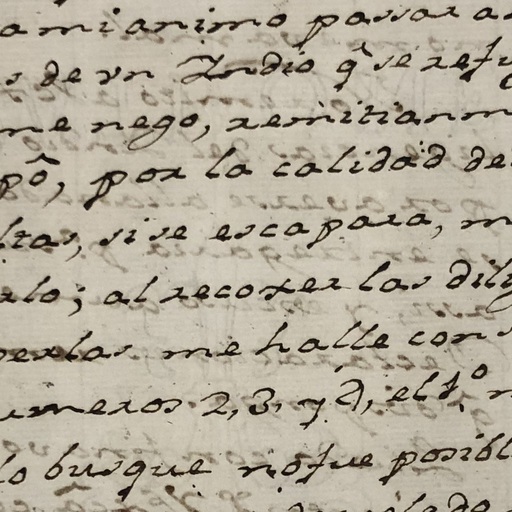 a mi animo passar a
s de vn Indio q̃ se refu
me nego, remitianm
pô, por la calidad de
ltas, si se escapara, m
rlo; al recoxer las dily
verlas me halle con s
umeros 2, 3, y 4, el f.º n
lo busque no fue posibl